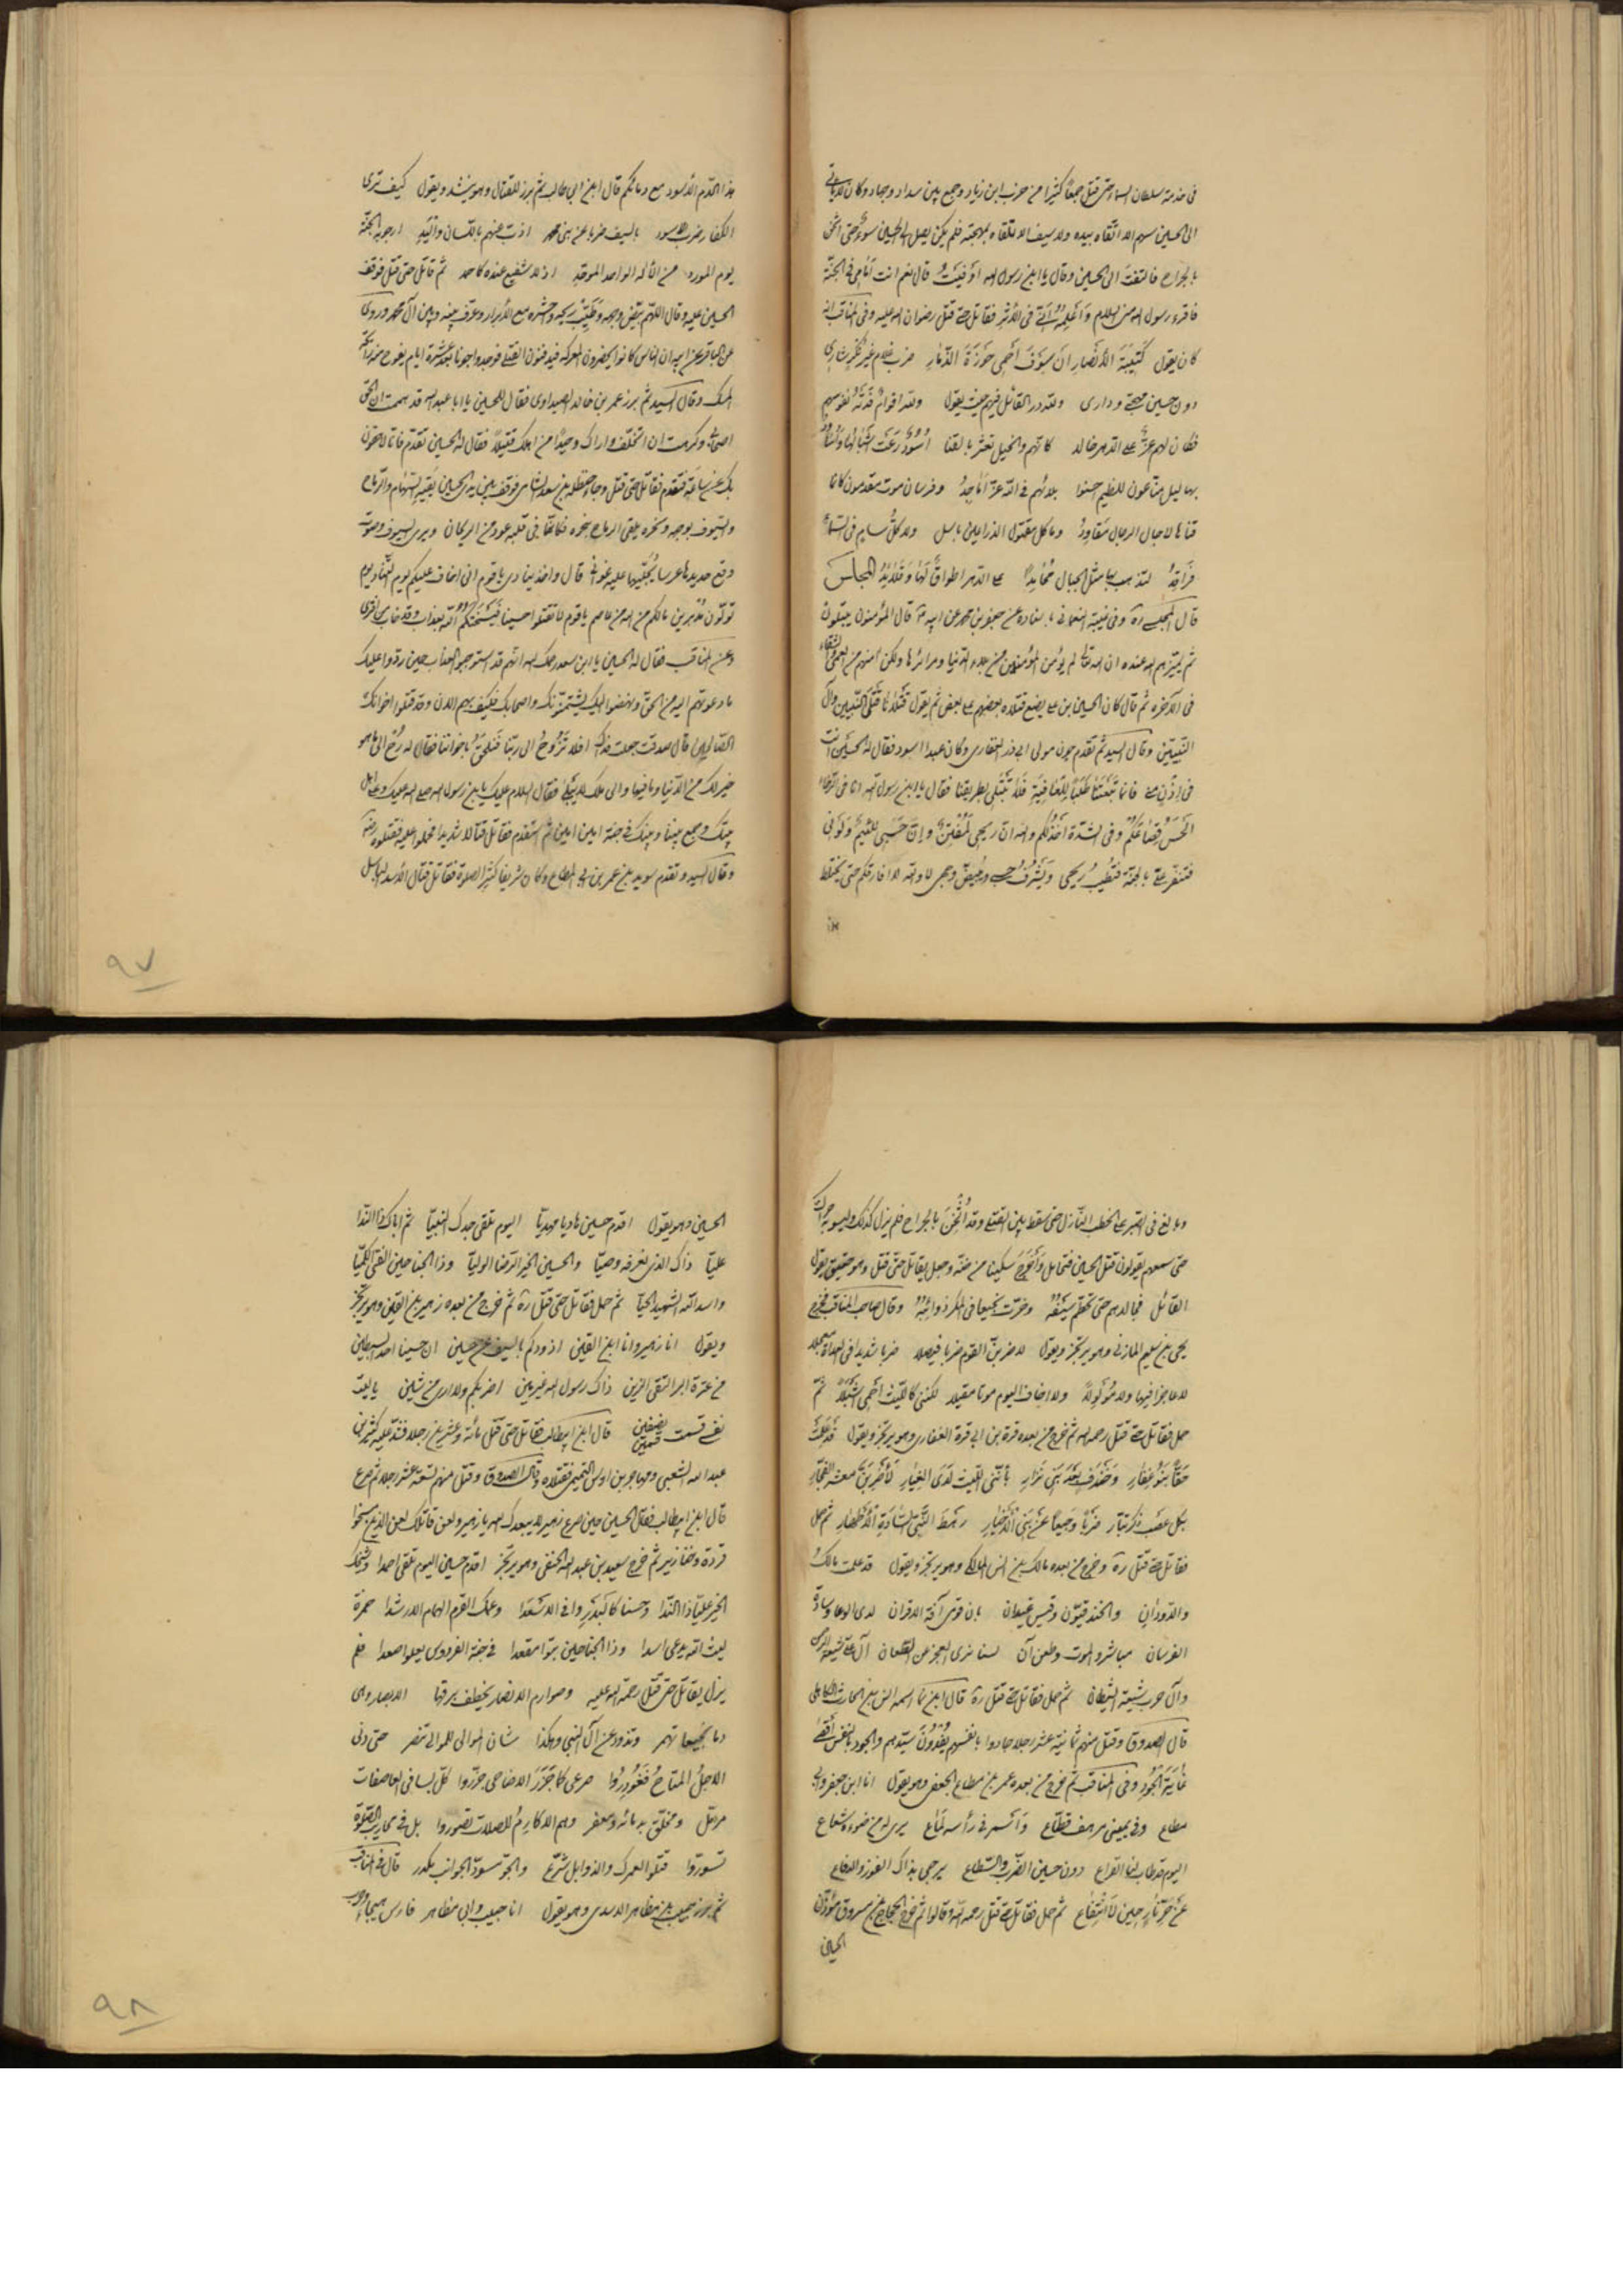 فى خدمة سلطان السماء حتى قتل جمعًا كثيرا من حزب ابن زياد وجمع بين سداد وجهاد وكان لا ياتى
الى الحسين سهم الا اتقاه بيده ولا سيف الا تلقاه بمهجته فلم يكن يصل الى الحسين سوء حتى اثخن
بالجراح فالتفت الى الحسين وقال يا ابن رسول الله اوفيت قال نعم انت امامى فى الجنة
فاقرء رسول الله منى السلام واعلمه انى فى الاثر فقاتل حتى قتل رضوان الله عليه وفى المناقب انه
كان يقول كتيبة الانصار ان سوف احمى حوزة الذمار ضرب غلام غير نكس شارى
دون حسين مهجتى ودارى ولله در القائل فيهم حيث يقول ولله اقوام فدته نفوسهم
فكان لهم عز على الدهر خالد كانهم والخيل تعثر بالقنا اسود رعت اشبالها
بهاليل مناعون للضيم احسنوا بلائهم فى الله عز اماجد وفرسان موت مقدمون كانما
قناها لاجال الرجال مقاود وما كل مفتول الذراعين باسل ولا كل سام فى السماء
فراقد لتذهب بها مثل الجبال محامدا على الدهر اطواق لها وقلائد المجلس
قال المجلسى ره وفى غيبة النعمانى باسناده عن جعفر بن محمد عن ابيه قال المؤمنون يبتلون
ثم يميزهم الله عنده ان الله تعالى لم يؤمن المؤمنين من بلاء الدنيا ومرائرها ولكن امنهم من العمى والشقاء
فى الآخرة ثم قال كان الحسين بن على يضع قتلاه بعضهم على بعض ثم يقول قتلانا قتلى النبيين وآل
النبيين وقال السيد ثم تقدم جون مولى ابى ذر الغفارى وكان عبدا اسود فقال له الحسين انت
فى اذن منى فانما تبعتنا طلبا للعافية فلا تبتلى بطريقنا فقال يا ابن رسول الله انا فى الرخاء
الحس قصاعكم وفى الشدة اخذلكم والله ان ريحى لمنتن وان حسبى للئيم ولونى
فتنفس على بالجنة فتطيب ريحى ويشرف حسبى ويبيض وجهى لا والله لا افارقكم حتى يختلط
هذا
هذا الدم الاسود مع دمائكم قال ابن ابى طالب ثم برز للقتال وهو ينشد ويقول كيف ترى
الكفار ضرب الاسود بالسيف ضربا عن بنى محمد اذب عنهم باللسان واليد ارجو به الجنة
يوم المورد من الاله الواحد الموحد اذ لا شفيع عنده كاحمد ثم قاتل حتى قتل فوقف
الحسين عليه وقال اللهم بيض وجهه وطيب ريحه واحشره مع الابرار وعرف بينه وبين آل محمد وروى
عن الباقر عن ابيه ان الناس كانوا يحضرون المعركة فيدفنون القتلى فوجدوا جونا بعد عشرة ايام يفوح منه رائحة
المسك وقال السيد ثم برز عمر بن خالد الصيداوى فقال للحسين يا ابا عبد الله قد هممت ان الحق
اصحابى وكرهت ان اتخلف واراك وحيدًا من اهلك قتيلا فقال له الحسين تقدم فانا لاحقون
بك عن ساعة فتقدم فقاتل حتى قتل وجاء حنظلة بن سعد الشامى فوقف بين يدى الحسين يقيه السهام والرماح
والسيوف بوجهه ونحره يلقى الرماح بنحره فكانما فى قلبه عود من الريحان ويرى السيوف وصوت
وقع حديدها عرسا يجليها عليه غوانى قال واخذ ينادى يا قوم انى اخاف عليكم يوم التناد يوم
تولون مدبرين مالكم من الله من عاصم يا قوم لا تقتلوا حسينا فيسحتكم الله بعذاب وقد خاب من افترى
وعن المناقب فقال له الحسين يا ابن سعد رحمك الله انهم قد استوجبوا العذاب حين ردوا عليك
ما دعوتهم اليه من الحق ونهضوا اليك يشتمونك واصحابك فكيف بهم الان وقد قتلوا اخوانك
الصالحين قال صدقت جعلت فداك افلا نروح الى ربنا فنلحق باخواننا فقال له رح الى ما هو
خير لك من الدنيا وما فيها والى ملك لا يبلى فقال السلام عليك يا بن رسول الله صلى الله عليك وعلى اهل
بيتك وجمع بيننا وبينك فى جنته امين امين ثم استقدم فقاتل قتالا شديدا فحملوا عليه فقتلوه رضه
وقال السيد وتقدم سويد بن عمر بن ابى المطاع وكان شريفا كثير الصلوة فقاتل قتال الاسد الباسل
٩٧
وبالغ فى الصبر على الخطب النازل حتى سقط بين القتلى وقد اثخن بالجراح فلم يزل كذلك وليس به حراك
حتى سمعهم يقولون قتل الحسين فتحامل واخرج سكينا من خفه وجعل يقاتل حتى قتل وهو حقيق بقول
القائل فجالدهم حتى تحطم سيفه وخرت نجيعا فى المكر ذوائبه وقال صاحب المناقب فخرج
يحيى بن سليم المازنى وهو يرتجز ويقول لاضربن القوم ضربا فيصلا ضربا شديدا فى العداة معجلا
لا عاجزا فيها ولا مولولا ولا اخاف اليوم موتا مقبلا لكننى كالليث احمى اشبلا ثم
حمل فقاتل حتى قتل رحمه الله ثم خرج من بعده قرة بن ابى قرة الغفارى وهو يرتجز ويقول قد علمت
حقا بنو غفار وخندف بعد بنى نزار باننى الليث لدى الغيار لاضربن معشر الفجار
بكل عضب ذكر بتار ضربا وجيعا عن بنى الاخيار رهط النبى السادة الاطهار ثم حمل
فقاتل حتى قتل ره وخرج من بعده مالك بن انس المالكى وهو يرتجز ويقول قد علمت مالك
والدودان والخندفيون وقيس عيلان بان قومى آفة الاقران لدى الوغا وسادة
الفرسان مباشروا الموت وطعن آن لسنا نرى العجز عن الطعان آل على شيعة الرحمن
وآل حرب شيعة الشيطان ثم حمل فقاتل حتى قتل ره قال ابن نما اسمه انس بن الحارث الكاهلى
قال الصدوق وقتل منهم ثمانية عشر رجلا جادوا بانفسهم يفدون سيدهم والجود بالنفس اقصى
غاية الجود وفى المناقب ثم خرج من بعده عمر بن مطاع الجعفى وهو يقول انا ابن جعف وابى
مطاع وفى يمينى مرهف قطاع واسمر فى راسه لماع يرى له من ضوءه شعاع
اليوم قد طاب لنا القراع دون حسين الضرب والسطاع يرجى بذاك الفوز والدفاع
عن حر نار حين لا انتفاع ثم حمل فقاتل حتى قتل رحمه الله وقالوا ثم خرج الحجاج بن مسروق مؤذن
الحسين
الحسين وهو يقول اقدم حسين هاديا مهديا اليوم تلقى جدك النبيا ثم اباك ذا الندا
عليا ذاك الذى نعرفه وصيا والحسين الخير الرضا الوليا وذا الجناحين الفتى الكميا
واسد الله الشهيد الحيا ثم حمل فقاتل حتى قتل ره ثم خرج من بعده زهير بن القين وهو يرتجز
ويقول انا زهير وانا ابن القين اذودكم بالسيف عن حسين ان حسينا احد السبطين
من عترة البر التقى الزين ذاك رسول الله غير مين اضربكم ولا ارى من شين يا ليت
نفسى قسمت نصفين قسمين قال ابن ابيطالب فقاتل حتى قتل مائة وعشرين رجلا فشد عليه كثير بن
عبد الله الشعبى ومهاجر بن اوس التميمى فقتلاه وقال الصدوق وقتل منهم تسعة عشر رجلا ثم صرع
قال ابن ابيطالب فقال الحسين حين صرع زهير لا يبعدك الله يا زهير ولعن قاتلك لعن الذين مسخوا
قردة وخنازير ثم خرج سعيد بن عبد الله الحنفى وهو يرتجز اقدم حسين اليوم تلقى احمدا وشيخك
الخير عليا ذا الندا وحسنا كالبدر وافى الاسعدا وعمك القرم الهمام الارشدا حمزة
ليث الله يدعى اسدا وذا الجناحين تبوا مقعدا فى جنة الفردوس يعلوا صعدا فلم
يزل يقاتل حتى قتل رحمة الله عليه وصوارم الانصار يخطف برقها الابصار وهى
دما نجيعا تهمر وتذود عن آل النبى وهكذا شان الموالى للموالى تنصر حتى دنى
الاجل المتاح فغودروا صرعى كما جزر الاضاحى جزروا كل بسافى العاصفات
مرمل ومخلق بدمائه ومعفر وهم الاكارم للصلات تصوروا بل فى محاريب الصلوة
تسوروا قتلوا لعمرك والذوابل شرع والجو مسود الجوانب مكدر قال فى المناقب
ثم برز حبيب بن مظاهر الاسدى وهو يقول انا حبيب وابى مظاهر فارس هيجاء وحرب
٩٨